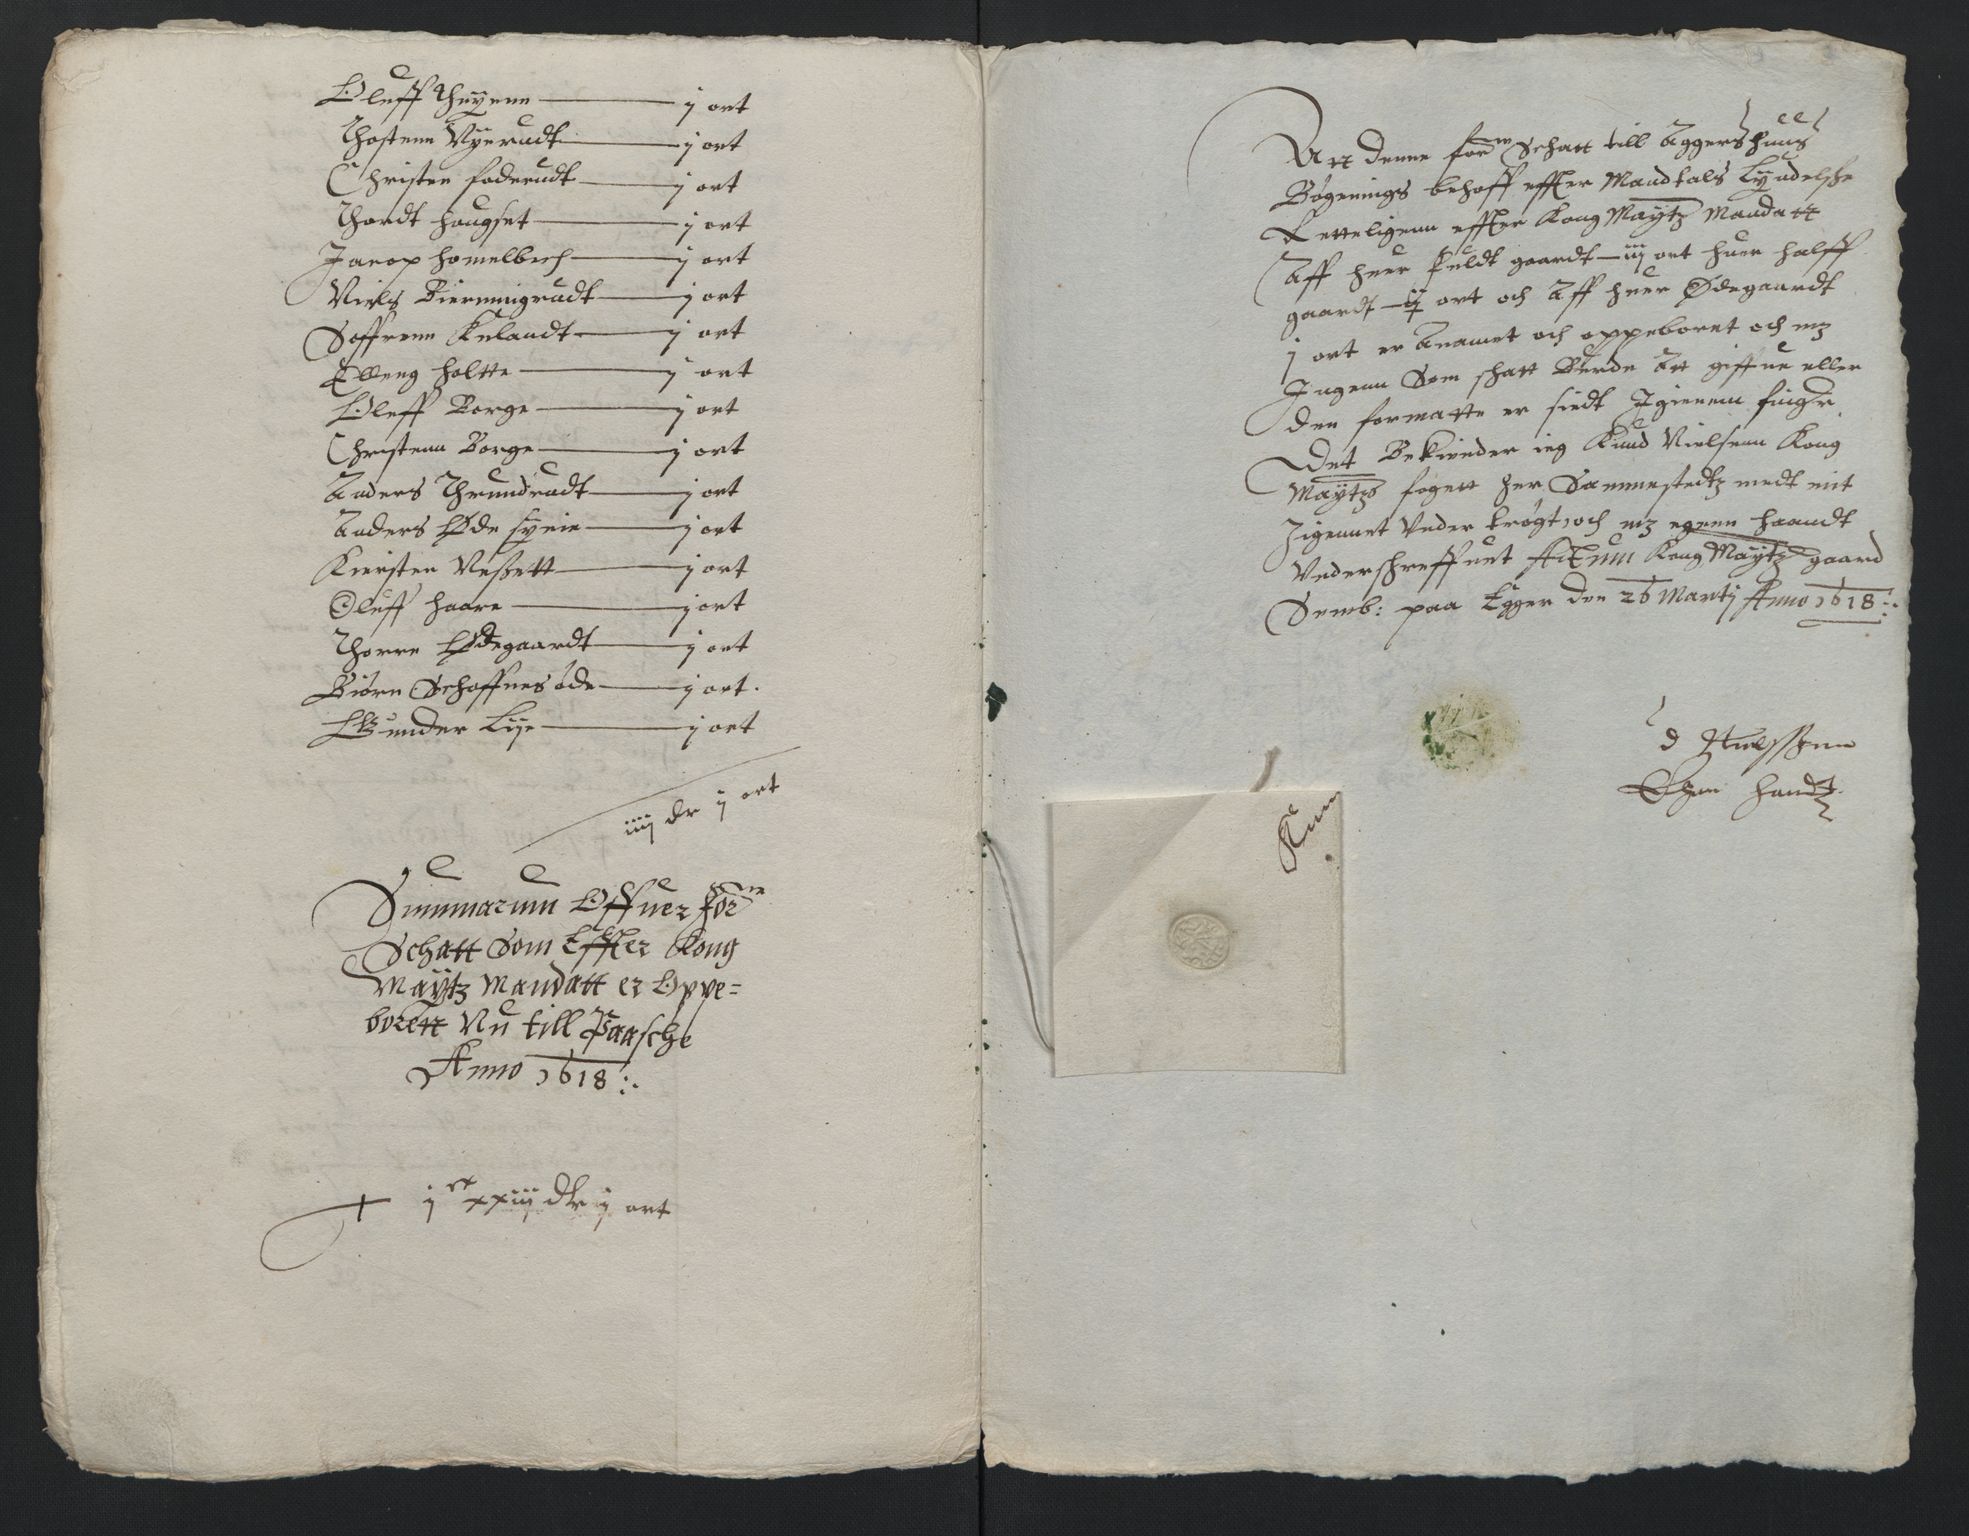 Oluff Thÿenn — j ort
Thostenn Vÿerudt — j ort
Christen foderudt — j ort
Thordt Haugset — j ort
Jacop Homelbech — j ort
Niels Bierningrudt — j ort
Soffrenn Kelandt — j ort
Elleng Holtte — j ort
Oleff Borge — j ort
Christenn Borge — j ort
Anders Thrundrudt — j ort
Anders Øde — j ort
Kiersten Neßett — j ort
Oluff Haare — j ort
Thorre Ødegaardt — j ort
Biørn Schoffnes øde — j ort.
Gunder Lÿe — j ort
iiij dr j ort
Summarum Offuer for.ne
Schatt Som Effter Kong
Maÿtz Mandatt er Oppe=
borett Nu till Paasche
Anno 1618 :.
j rx xxiij dlr j ort
Att denne for.ne Schatt till Aggershuus
Bøgnings behoff effter Mandtals Lÿudelsse
Retteligenn effter Kong Maÿtz Mandatt
Aff huer fuldt gaardt — iiij ort huer halff
gaardt — ij ort och Aff huer Ødegaardt
j ort er Anamet och oppeboret och mz
Ingenn Som schatt Burde Att giffue eller
den formatte er siedt Igienem fingr.
Det Bekiender ieg Knud Nielsenn Kong
Maÿtzs foget her Sammestedtz medt mit
Zigennet Under trøgt och mz egenn haandt
Underschreffuet Actum Kong Maÿtz gaard
Semb: paa Egger den 26 Martj Anno 1618 :.
Knu
d Nielssenn
Egen handt